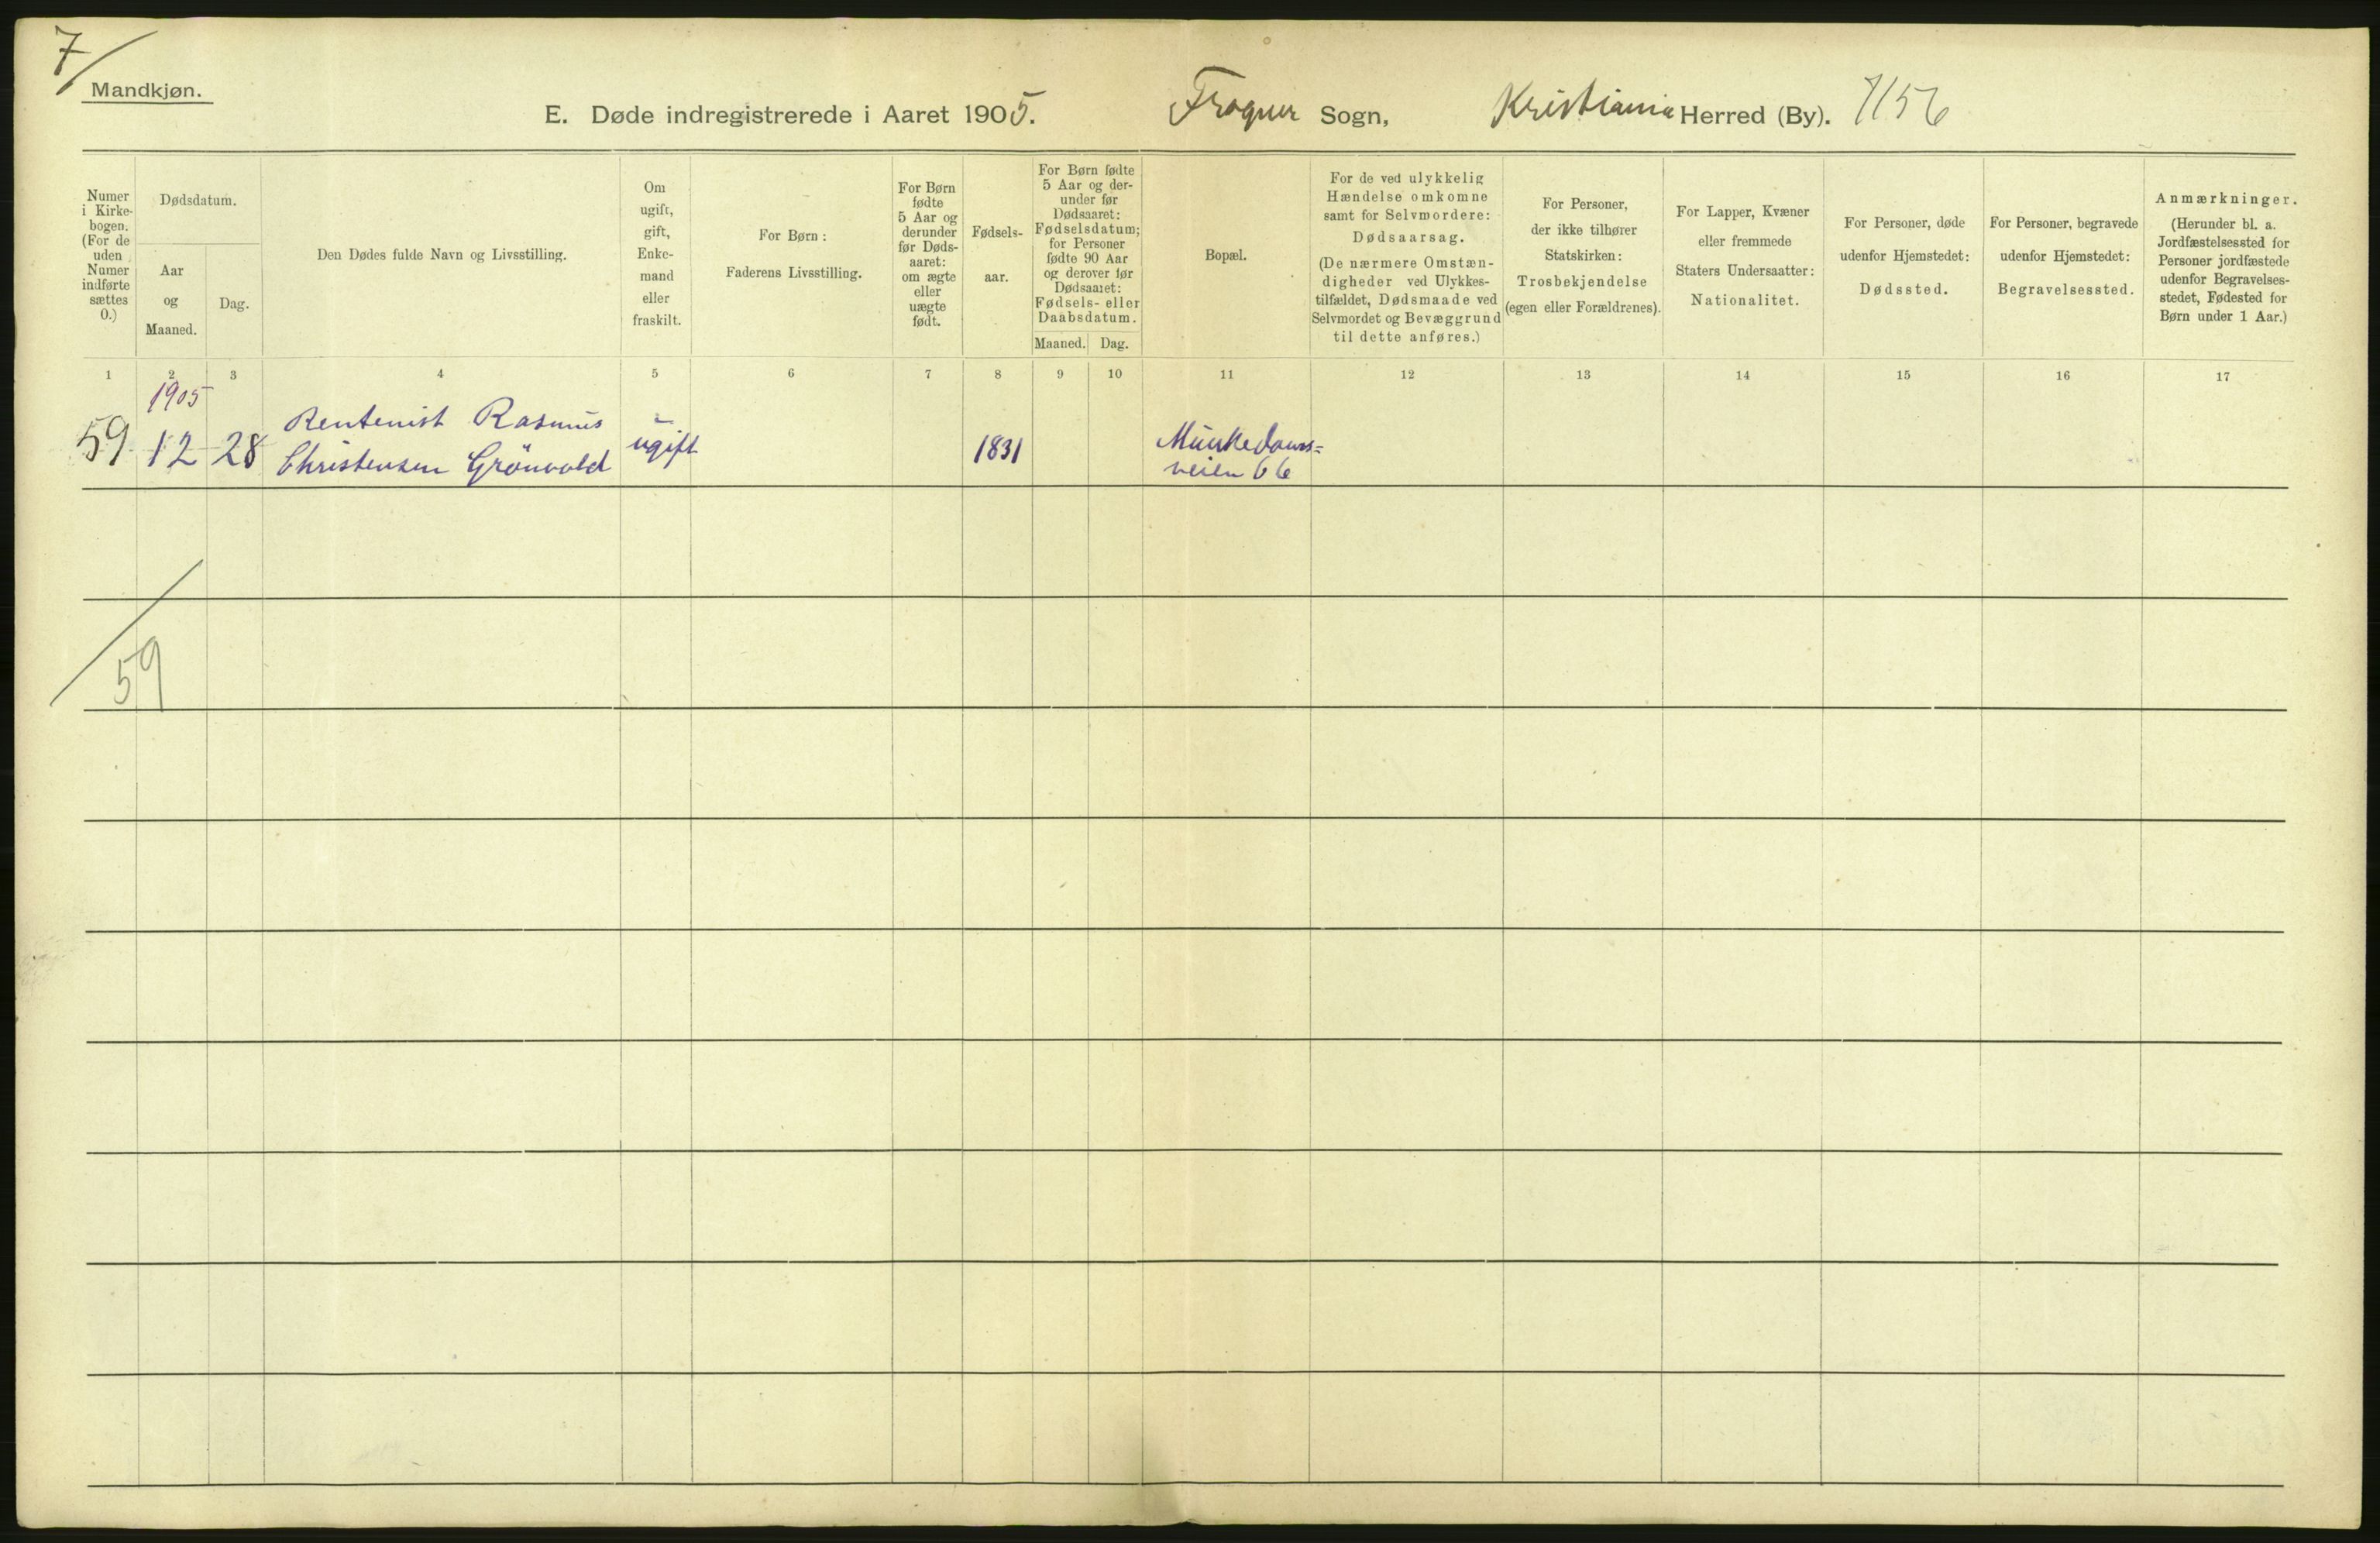 7
Mandkjøn.
E. Døde indregistrerede i Aaret 1905. Frogner Sogn, Kristiania Herred (By). 1156
Numer
i Kirke-
bogen.
(For de
uden
Numer
indførte
sættes
0.)
Dødsdatum.
Aar
og
Maaned.
Dag.
Den Dødes fulde Navn og Livsstilling.
Om
ugift,
gift,
Enke-
mand
eller
fraskilt.
For Børn:
Faderens Livsstilling.
For Børn
fødte
5 Aar og
derunder
før Døds-
aaret:
om ægte
eller
uægte
født.
Fødsels-
aar.
For Børn fødte
5 Aar og der-
under før
Dødsaaret:
Fødselsdatum;
for Personer
fødte 90 Aar
og derover før
Dødsaaret:
Fødsels- eller
Daabsdatum.
Maaned. Dag.
Bopæl.
For de ved ulykkelig
Hændelse omkomne
samt for Selvmordere:
Dødsaarsag.
(De nærmere Omstæn-
digheder ved Ulykkes-
tilfældet, Dødsmaade ved
Selvmordet og Bevæggrund
til dette anføres.)
For Personer,
der ikke tilhører
Statskirken:
Trosbekjendelse
(egen eller Forældrenes).
For Lapper, Kvæner
eller fremmede
Staters Undersaatter:
Nationalitet.
For Personer, døde
udenfor Hjemstedet:
Dødssted.
For Personer, begravede
udenfor Hjemstedet:
Begravelsessted.
Anmærkninger.
(Herunder bl. a.
Jordfæstelsessted for
Personer jordfæstede
udenfor Begravelses-
stedet, Fødested for
Børn under 1 Aar.)
1 2 3 4 5 6 7 8 9 10 11 12 13 14 15 16 17
1905
Rentenist Rasmus
59 12 28 Christensen Grönvold ugift 1831 Munkedams=
veien 66
59